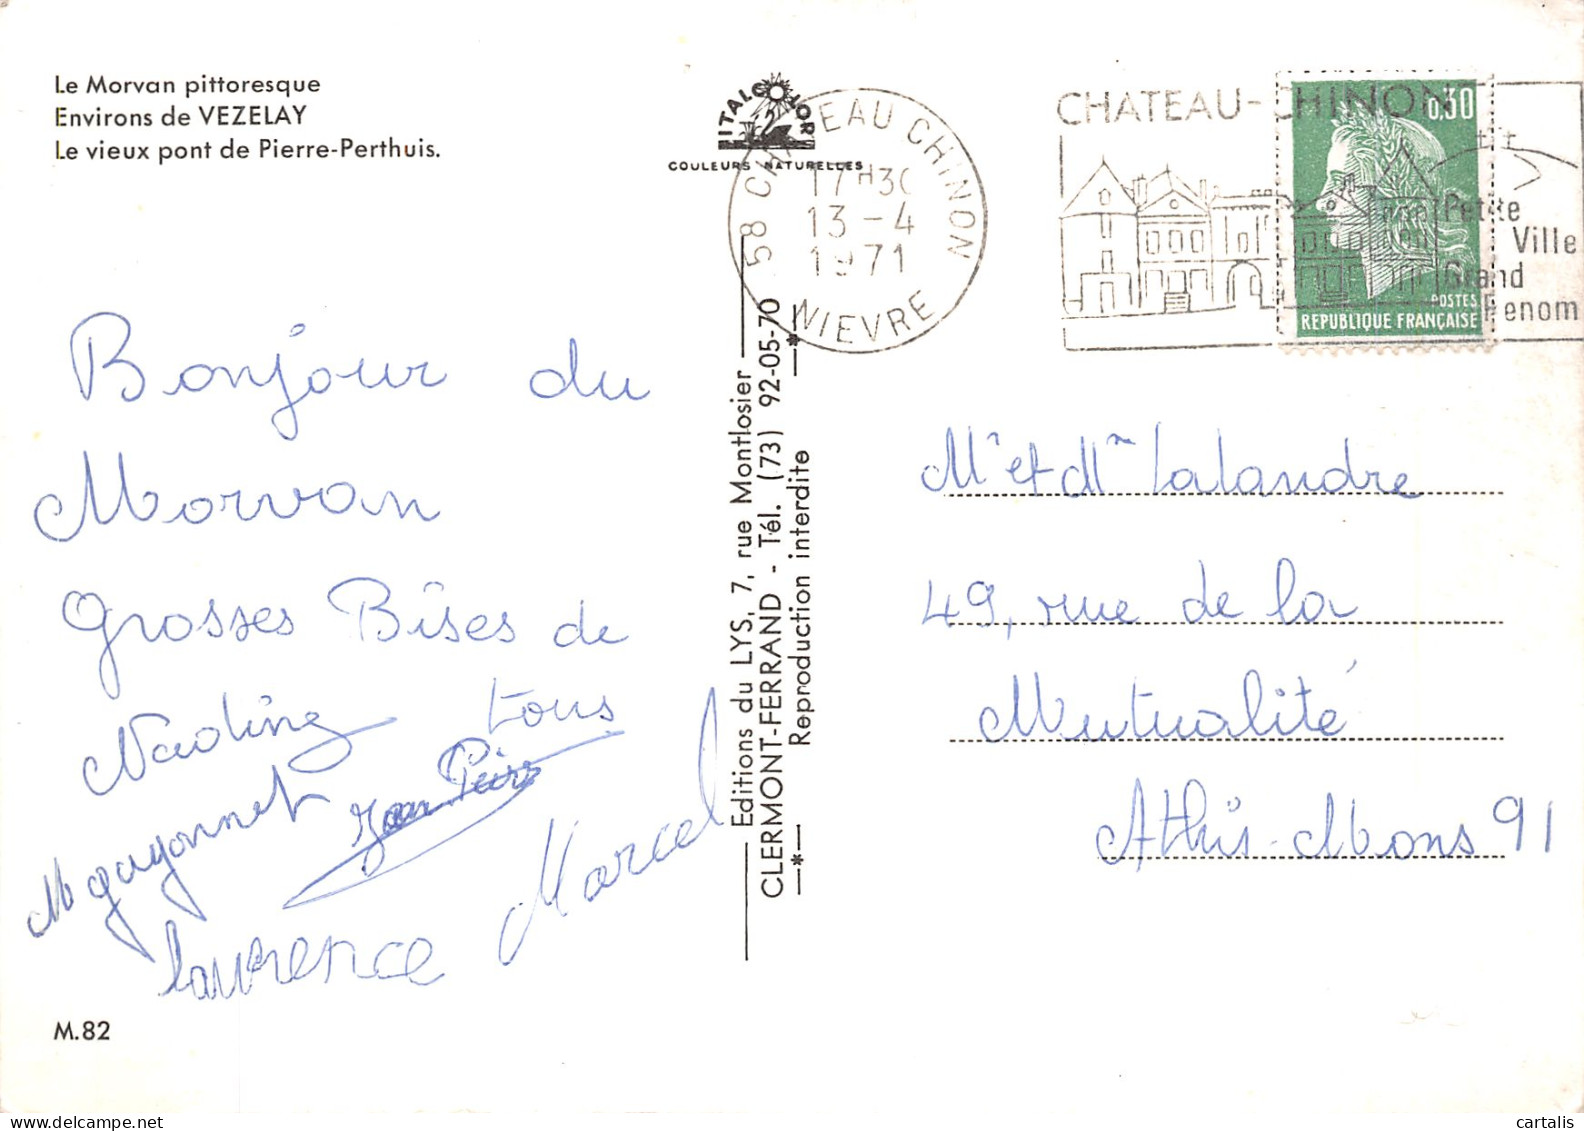 Le Morvan pittoresque
Environs de VEZELAY
Le vieux pont de Pierre-Perthuis.
ITALCOLOR
COULEURS NATURELLES
58 CHATEAU CHINON
17H30
13-4
1971
NIEVRE
CHATEAU-CHINON
Petite
Ville
Grand
Renom
0,30
POSTES
REPUBLIQUE FRANÇAISE
Bonjour du
Morvan
Grosses Bises de
tous
Nadine
Jean Pierre
M gagonnet
Marcel
laurence
M.82
Editions du LYS, 7, rue Montlosier
CLERMONT-FERRAND - Tél. (73) 92-05-70
—*— Reproduction interdite —*—
Mr et Mme Lalandre
49, rue de la
Mutualité
Athis-Mons 91
cartalis